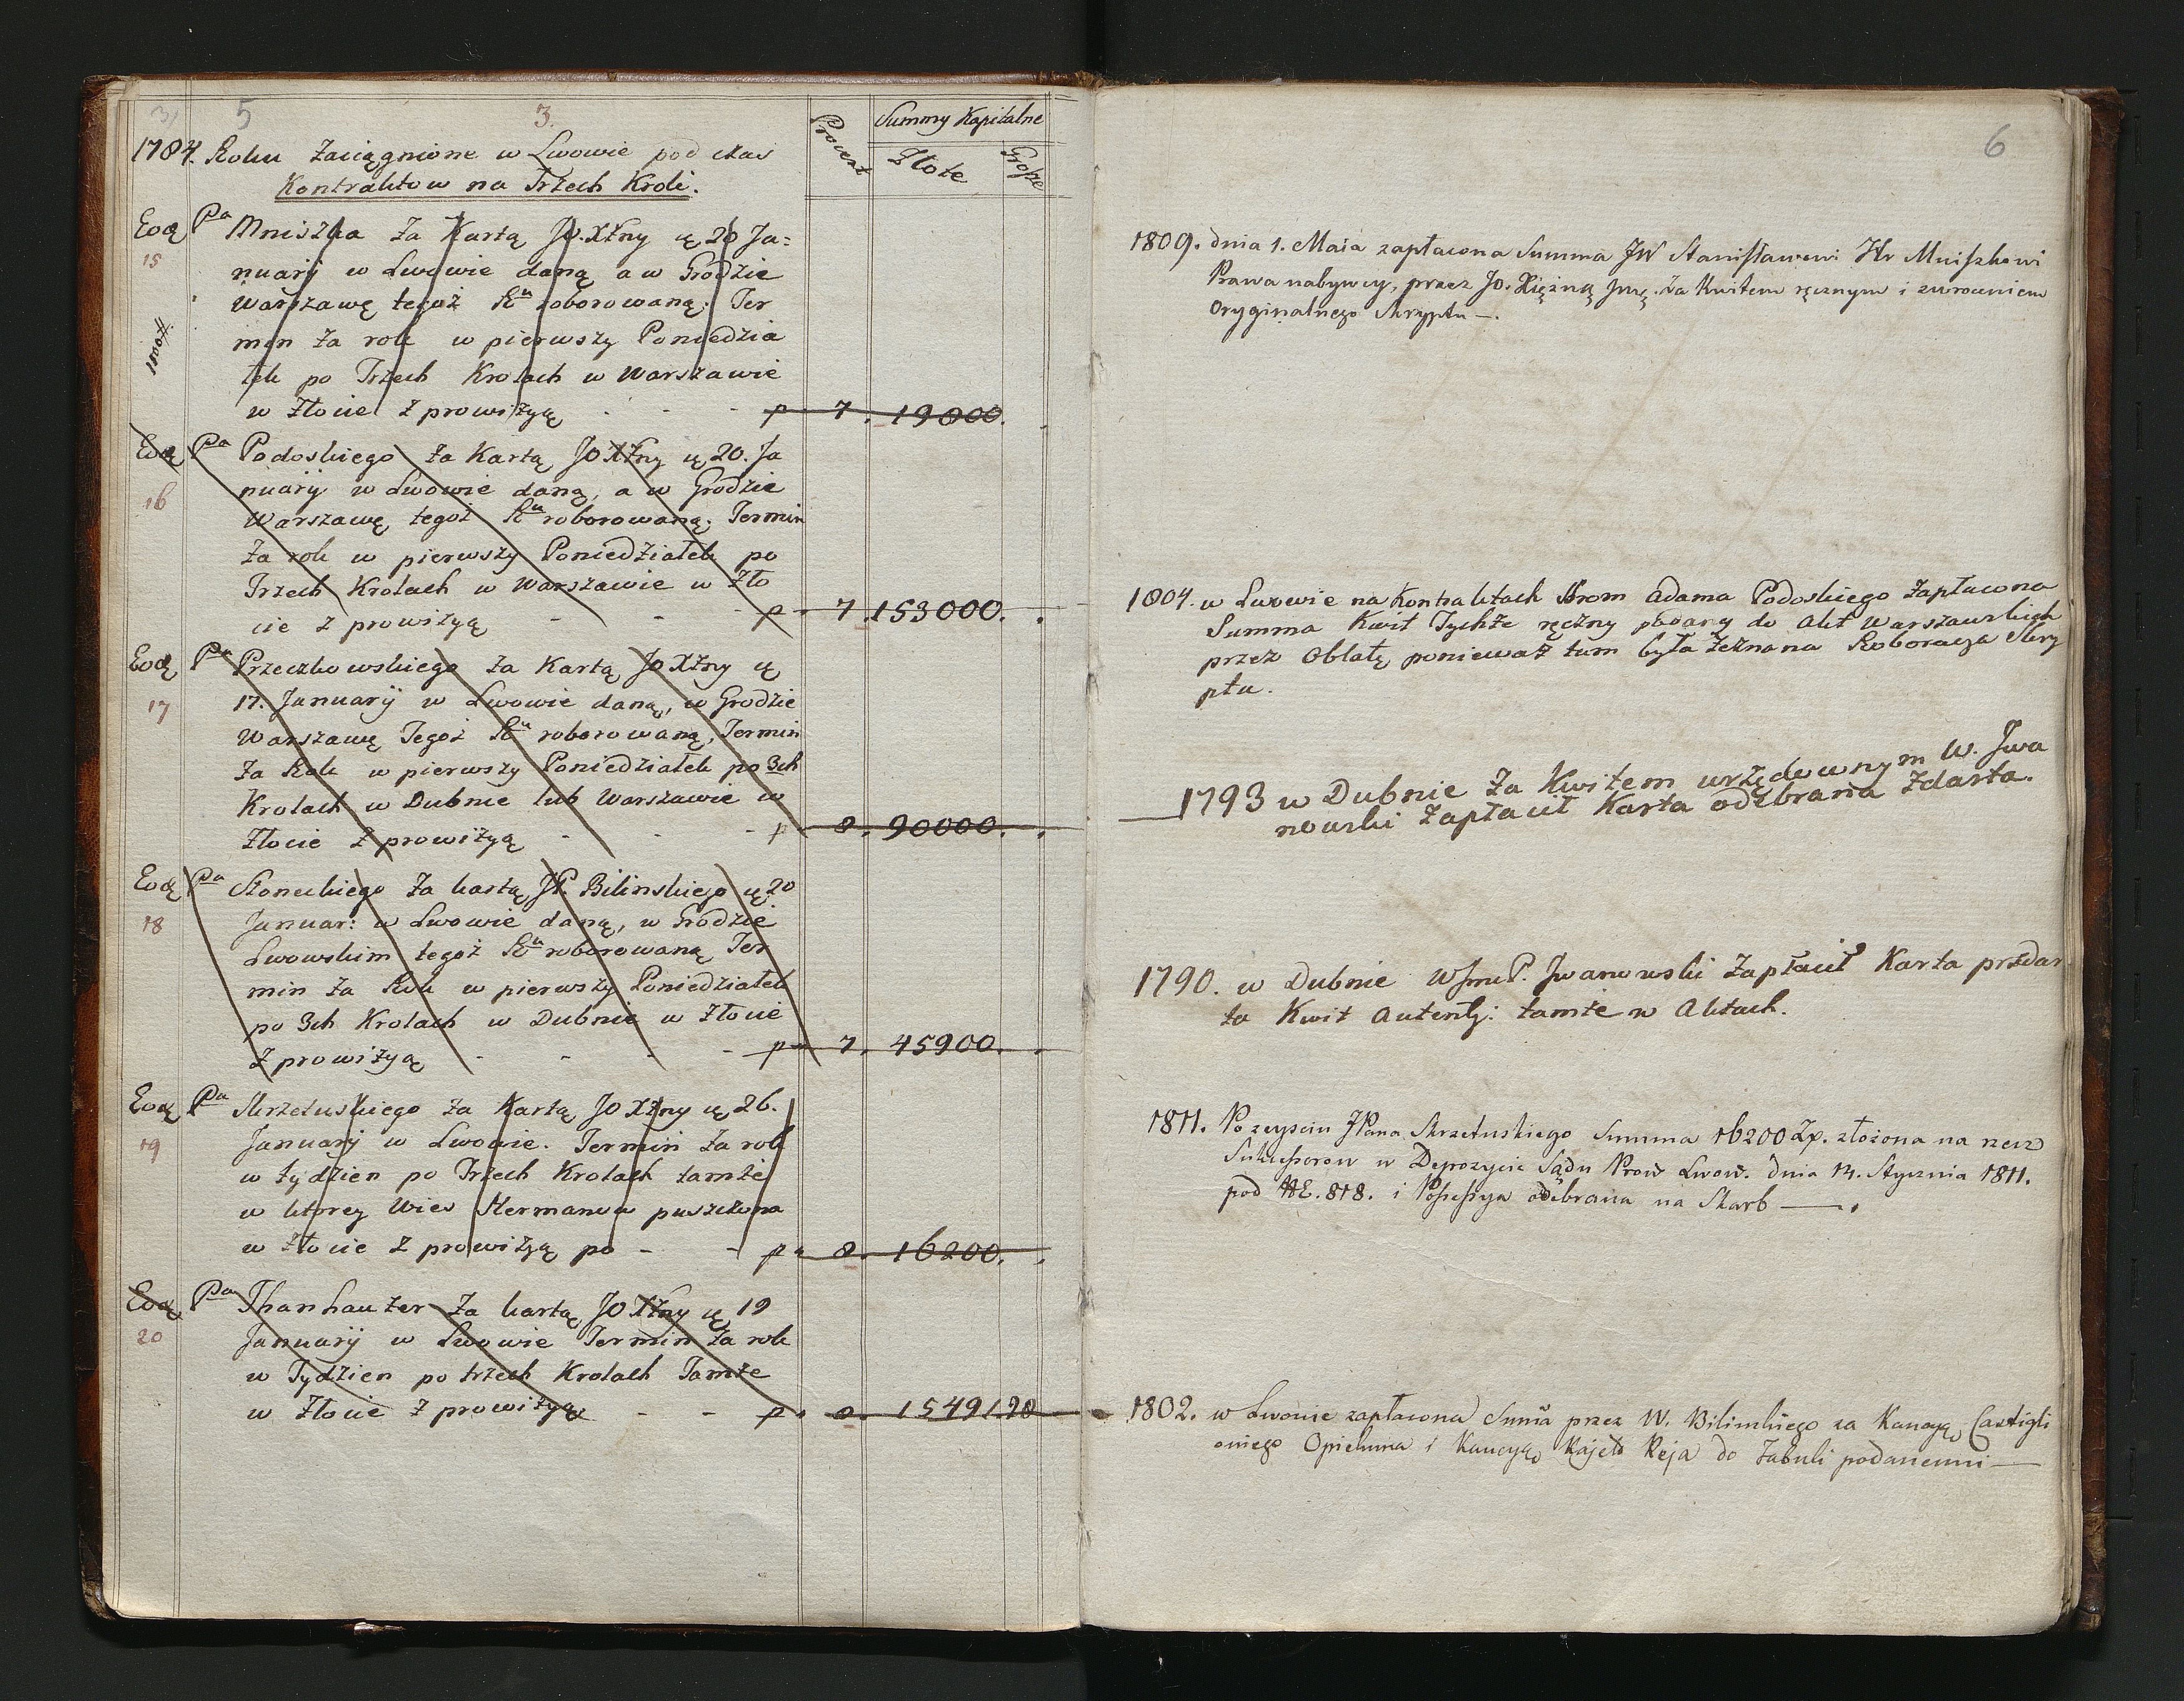 31 5 3.
Procent Summy Kapitalne
Złote Grosze
1784. Roku Zaciągnione w Lwowie pod czas
Kontraktow na Trzech Kroli.
Eod P<sup>a</sup> Mniszka za Kartą JO. Xżny d 20 Ja=
15 nuarÿ w Lwowie daną a w Grodzie
Warszawę tegoż R<sup>u</sup> roborowaną. Ter
min za rok w pierwszy Poniedzia
łek po Trzech Krolach w Warszawie
w Złocie z prowizyą - - - p 7. 19000.
Eod P<sup>a</sup> Podoskiego za Kartą JO Xżny d 20. Ja
16 nuarÿ w Lwowie daną, a w Grodzie
Warszawę tegoż R<sup>u</sup> roborowaną. Termin
za rok w pierwszy Poniedziałek po
Trzech Krolach w Warszawie w Zło
cie z prowizyą - - - p 7. 153000.
Eod P<sup>a</sup> Przeczkowskiego za Kartą JO Xżny d
17 17. Januarÿ w Lwowie daną, w Grodzie
Warszawę Tegoż R<sup>u</sup> roborowaną, Termin
za Rok w pierwszy Poniedziałek po 3ch
Krolach w Dubnie lub Warszawie w
Złocie z prowizyą - - - p 8. 90000.
Eod P<sup>a</sup> Słoneckiego za kartą JP. Bilinskiego d 20
18 Januar: w Lwowie daną, w Grodzie
Lwowskim tegoż R<sup>u</sup> roborowaną Ter
min za Rok w pierwszy Poniedziałek
po 3ch Krolach w Dubnie w Złocie
z prowizyą - - - - p 7. 45900.
Eod P<sup>a</sup> Skrzetuskiego za Kartą JO Xżny d 26.
19 Januarÿ w Lwowie. Termin za rok
w tydzien po Trzech Krolach tamże
w ktorey Wies Hermanow puszczona
w Złocie z prowizyą po - - p 8. 16200.
Eod P<sup>a</sup> Thanhauzer za kartą JO Xżny d 19
20 Januarÿ w Lwowie Termin za rok
w Tydzien po trzech Krolach Tamże
w Złocie z prowizyą - - p. 8. 15491.20
6
1809. dnia 1. Maia zapłacona Summa JW Stanisławowi Hr Mniszkowi
Prawa nabywcy, przez JO. Xiężnę Jmę. za Kwitem ręcznym i zwroceniem
Oryginalnego Skryptu —.
1804. w Lwowie na Kontraktach Skrom Adama Podoskiego Zapłacona
Summa Kwit Tychże ręczny podany do Akt Warszawskich
przez Oblatę ponieważ tam była zeznana Roboracya Skry
ptu.
1793 w Dubnie Za Kwitem urzędownym W. Jwa
nowski Zapłacił Karta odebrana Zdarta.
1790. w Dubnie WJmcP. Jwanowski Zapłacił Karta przedar
ta Kwit Autenty: tamże w Aktach.
1811. Po zeysciu JPana Skrzetuskiego Summa 16200 Zp. złożona na rzecz
Sukcessorow w Depozycie Sądu Prow Lwow. dnia 14. Stycznia 1811.
pod NE. 818. i Possessya odebrana na Skarb —.
1802. w Lwowie zapłacona Summa przez W. Bilinskiego za Kaucyą Castigli
oniego Opiekuna i Kaucyą Kajeta Reja do Tabuli podanemi —